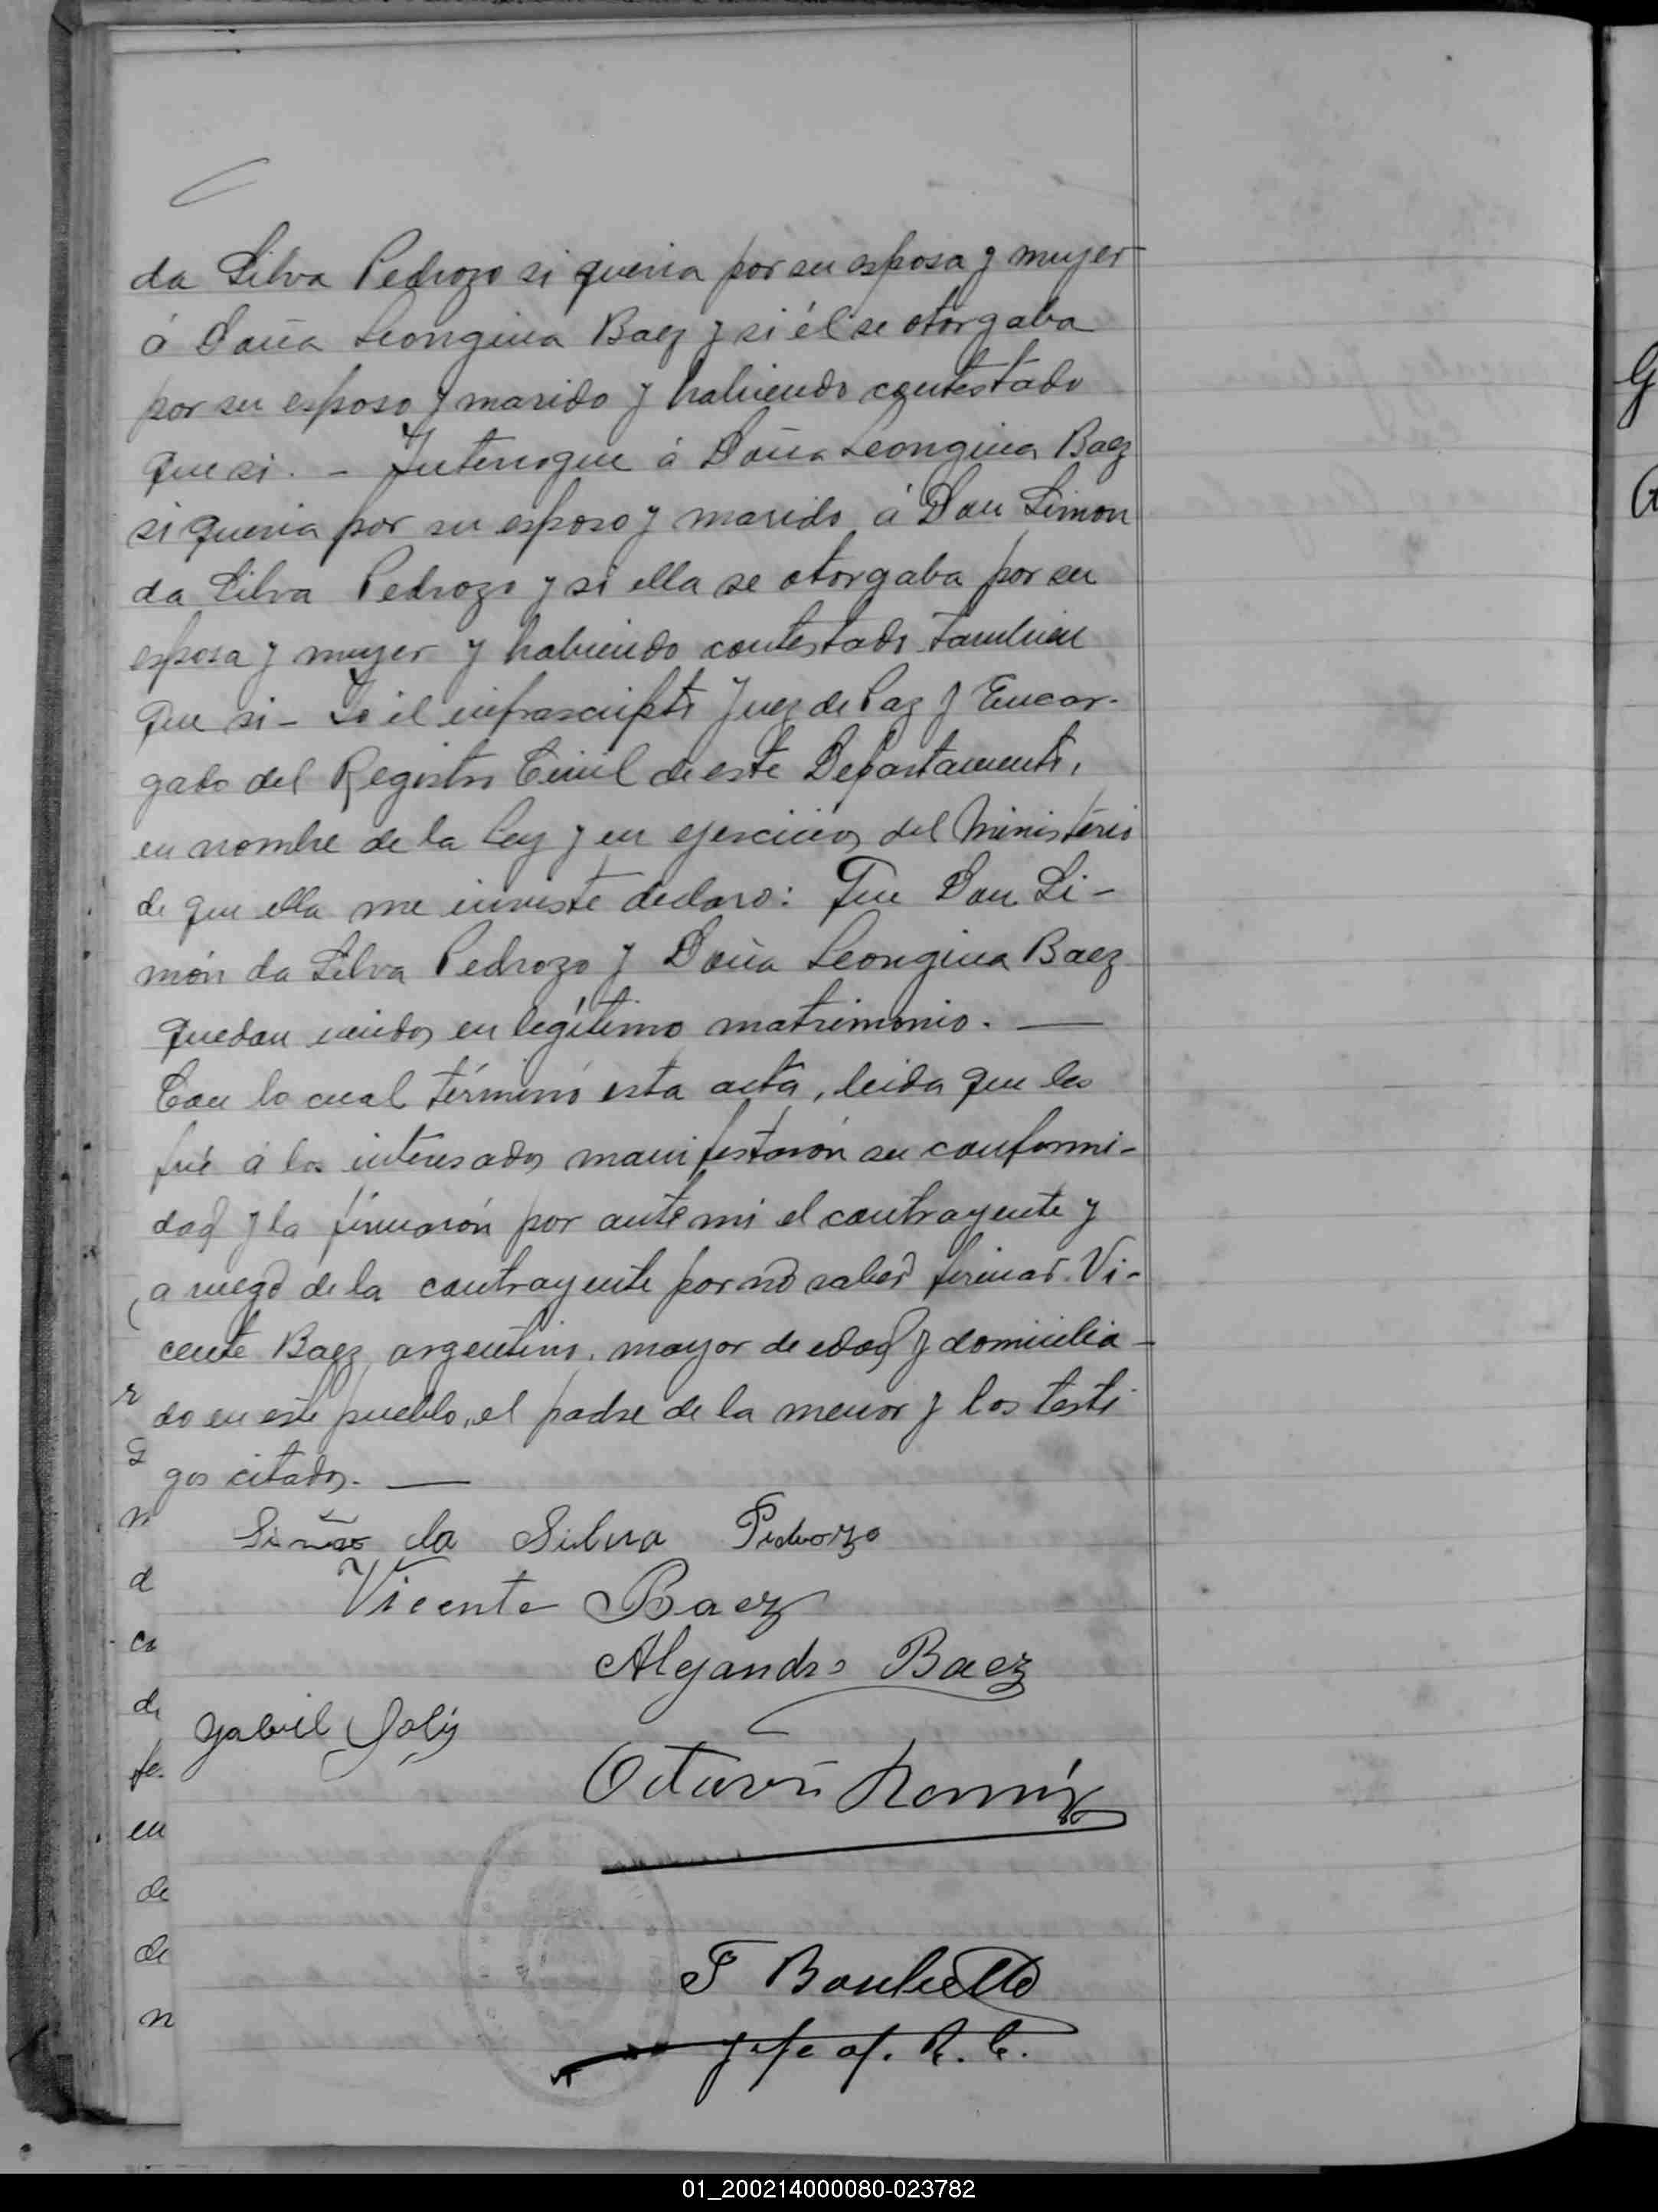 da Silva Pedrozo si queria por su esposa y mujer
á Doña Leongina Baez y si él se otorgaba
por su esposo y marido y habiendo contestado
que si. - Interrogue á Doña Leongina Baez
si queria por su esposo y marido á Don Simon
da Silva Pedrozo y si ella se otorgaba por su
esposa y mujer y habiendo contestado tambien
que si - Yo el infrascripto Juez de Paz y Encar-
gado del Registro Civil de este Departamento,
en nombre de la Ley y en ejercicio del Ministerio
de que ella me inviste declaro: Que Don Si-
món da Silva Pedrozo y Doña Leongina Baez
quedan unidos en legítimo matrimonio. —
Con lo cual términó esta acta, leida que les
fué á los interesados manifestarón su conformi-
dad y la firmarón por ante mi el contrayente y
a ruego de la contrayente por no saber firmar Vi-
cente Baez, argentino, mayor de edad y domicilia-
do en este pueblo, el padre de la menor y los testi
gos citados. —
Simão da Silva Pedrozo
Vicente Baez
Alejandro Baez
Gabriel Solis
Octavio Ramirez
Jefe of. R. C.
r
n
d
ca
de
fe.
en
de
de
n
G
01_200214000080-023782